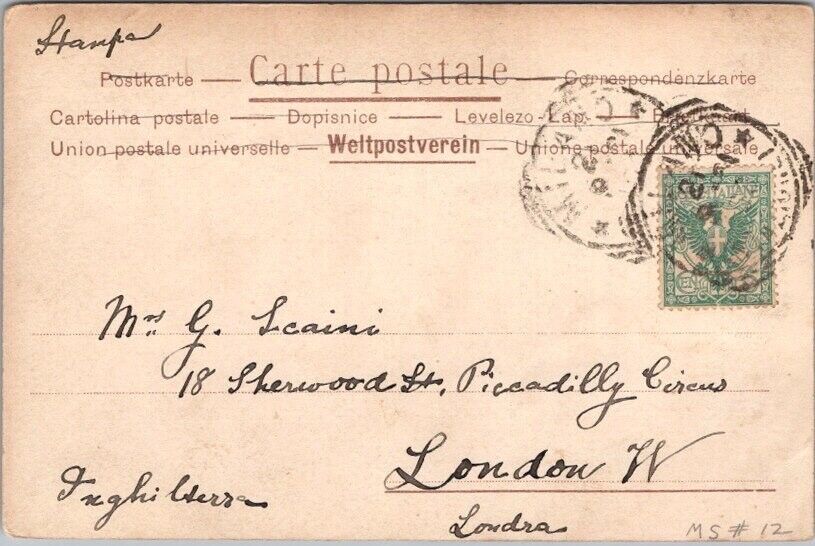 Stampa
Postkarte — Carte postale — Correspondenzkarte
Cartolina postale — Dopisnice — Levelezo-Lap. — Briefkaart
Union postale universelle — Weltpostverein — Unione postale universale
MILANO
Mrs G. Scaini
18 Sherwood St, Piccadilly Circus
London W
Inghilterra
Londra
MS # 12